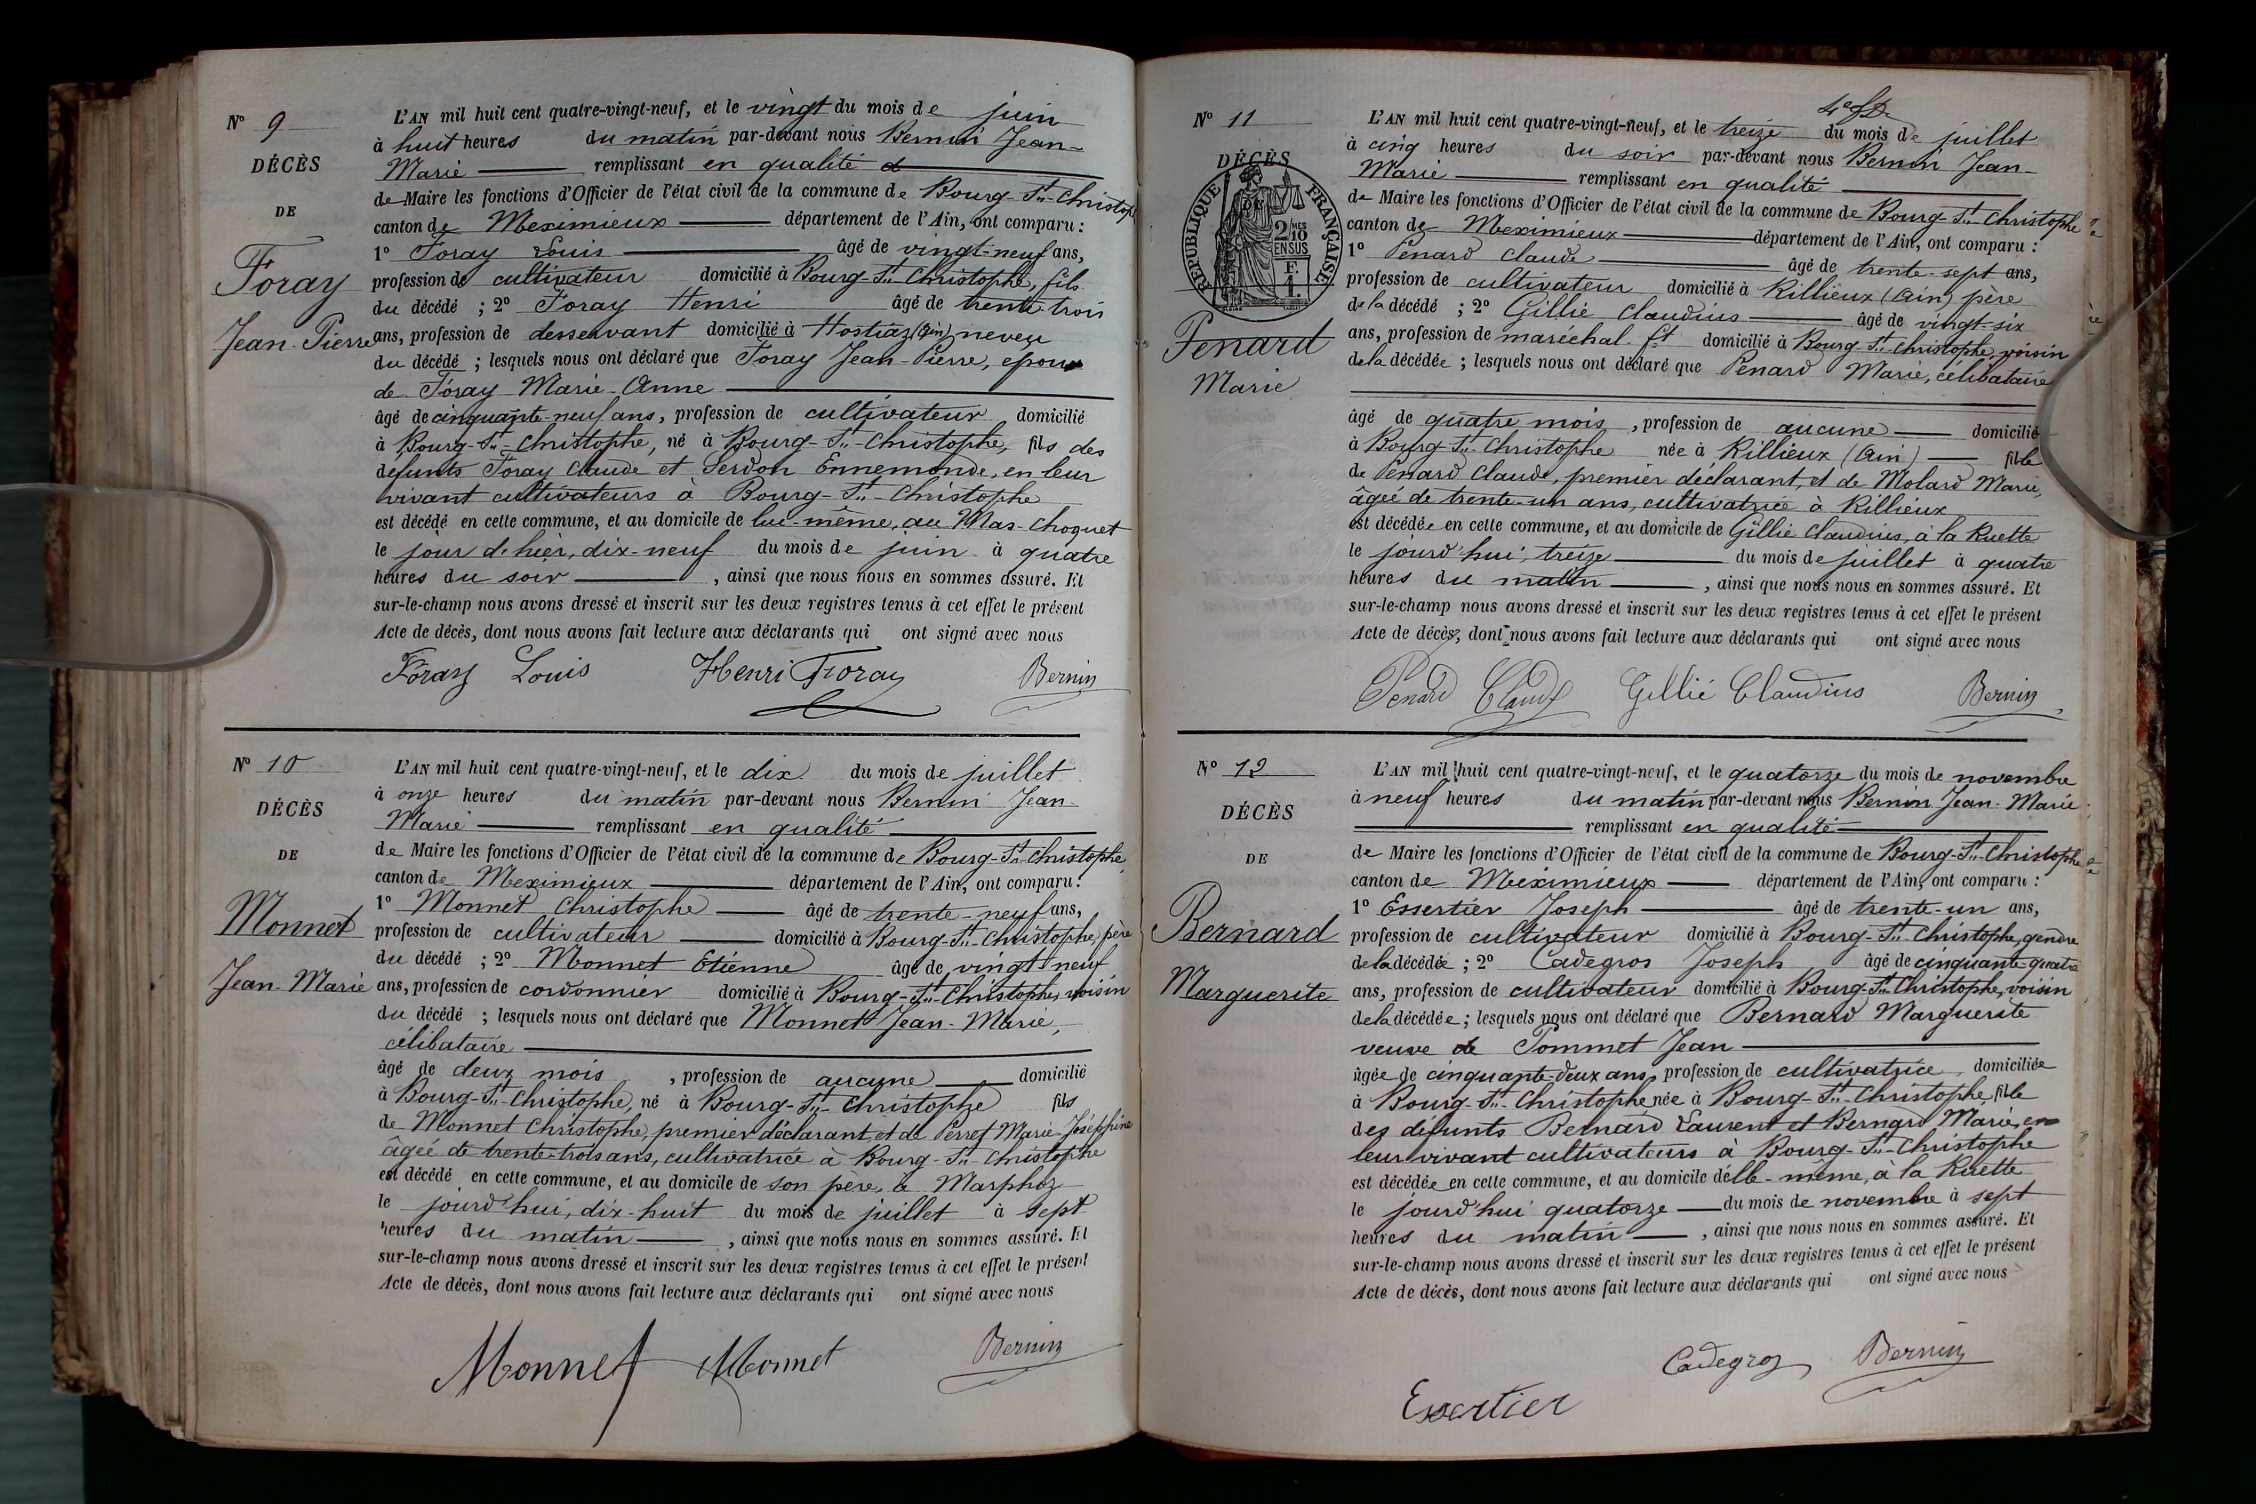 N° 9
DÉCÈS
DE
Foray
Jean-Pierre
L'AN mil huit cent quatre-vingt-neuf, et le vingt du mois de juin
à huit heures du matin par-devant nous Bernin Jean-
Marie remplissant en qualité
de Maire les fonctions d'Officier de l'état civil de la commune de Bourg-St-Christophe
canton de Meximieux département de l'Ain, ont comparu :
1° Foray Louis âgé de vingt-neuf ans,
profession de cultivateur domicilié à Bourg-St-Christophe, fils
du décédé ; 2° Foray Henri âgé de trente-trois
ans, profession de desservant domicilié à Hostiaz (Ain) neveu
du décédé ; lesquels nous ont déclaré que Foray Jean-Pierre, epoux
de Foray Marie-Anne
âgé de cinquante-neuf ans, profession de cultivateur domicilié
à Bourg-St-Christophe, né à Bourg-St-Christophe, fils des
defunts Foray Claude et Serdon Ennemonde, en leur
vivant cultivateurs à Bourg-St-Christophe
est décédé en cette commune, et au domicile de lui-même, au Mas-Choquet
le jour d'hier, dix-neuf du mois de juin à quatre
heures du soir , ainsi que nous nous en sommes assuré. Et
sur-le-champ nous avons dressé et inscrit sur les deux registres tenus à cet effet le présent
Acte de décès, dont nous avons fait lecture aux déclarants qui ont signé avec nous
Foray Louis Henri Foray Bernin
N° 10
DÉCÈS
DE
Monnet
Jean-Marie
L'AN mil huit cent quatre-vingt-neuf, et le dix du mois de juillet
à onze heures du matin par-devant nous Bernin Jean-
Marie remplissant en qualité
de Maire les fonctions d'Officier de l'état civil de la commune de Bourg-St-Christophe,
canton de Meximieux département de l'Ain, ont comparu :
1° Monnet Christophe âgé de trente-neuf ans,
profession de cultivateur domicilié à Bourg-St-Christophe, père
du décédé ; 2° Monnet Etienne âgé de vingt-neuf
ans, profession de cordonnier domicilié à Bourg-St-Christophe, voisin
du décédé ; lesquels nous ont déclaré que Monnet Jean-Marie,
célibataire
âgé de deux mois , profession de aucune domicilié
à Bourg-St-Christophe, né à Bourg-St-Christophe fils
de Monnet Christophe, premier déclarant, et de Perret Marie-Joséphine
âgée de trente-trois ans, cultivatrice à Bourg-St-Christophe
est décédé en cette commune, et au domicile de son père, à Marphoz
le jourd'hui, dix-huit du mois de juillet à sept
heures du matin , ainsi que nous nous en sommes assuré. Et
sur-le-champ nous avons dressé et inscrit sur les deux registres tenus à cet effet le présent
Acte de décès, dont nous avons fait lecture aux déclarants qui ont signé avec nous
Monnet Monnet Bernin
N° 11
DÉCÈS
REPUBLIQUE FRANÇAISE
2 MES
10
EN SUS
F.
1.
Penard
Marie
L'AN mil huit cent quatre-vingt-neuf, et le treize du mois de juillet
à cinq heures du soir par-devant nous Bernin Jean-
Marie remplissant en qualité
de Maire les fonctions d'Officier de l'état civil de la commune de Bourg-St-Christophe
canton de Meximieux département de l'Ain, ont comparu :
1° Penard Claude âgé de trente-sept ans,
profession de cultivateur domicilié à Rillieux (Ain) père
de la décédé ; 2° Gillié Claudius âgé de vingt-six
ans, profession de maréchal ft domicilié à Bourg-St-Christophe, voisin
de la décédée ; lesquels nous ont déclaré que Penard Marie, célibataire
âgé de quatre mois , profession de aucune domicilié
à Bourg-St-Christophe née à Rillieux (Ain) fille
de Penard Claude, premier déclarant, et de Molard Marie,
âgée de trente-un ans, cultivatrice à Rillieux
est décédée en cette commune, et au domicile de Gillié Claudius, à la Ruette
le jourd'hui, treize du mois de juillet à quatre
heures du matin , ainsi que nous nous en sommes assuré. Et
sur-le-champ nous avons dressé et inscrit sur les deux registres tenus à cet effet le présent
Acte de décès, dont nous avons fait lecture aux déclarants qui ont signé avec nous
Penard Claude Gillié Claudius Bernin
N° 12
DÉCÈS
DE
Bernard
Marguerite
L'AN mil huit cent quatre-vingt-neuf, et le quatorze du mois de novembre
à neuf heures du matin par-devant nous Bernin Jean-Marie
remplissant en qualité
de Maire les fonctions d'Officier de l'état civil de la commune de Bourg-St-Christophe
canton de Meximieux département de l'Ain, ont comparu :
1° Essertier Joseph âgé de trente-un ans,
profession de cultivateur domicilié à Bourg-St-Christophe, gendre
de la décédée ; 2° Cadegros Joseph âgé de cinquante-quatre
ans, profession de cultivateur domicilié à Bourg-St-Christophe, voisin
de la décédée ; lesquels nous ont déclaré que Bernard Marguerite
veuve de Pommet Jean
âgée de cinquante-deux ans, profession de cultivatrice domiciliée
à Bourg-St-Christophe née à Bourg-St-Christophe, fille
des defunts Bernard Laurent et Bernard Marie, en
leur vivant cultivateurs à Bourg-St-Christophe
est décédée en cette commune, et au domicile d'elle-même, à la Ruette
le jourd'hui quatorze du mois de novembre à sept
heures du matin , ainsi que nous nous en sommes assuré. Et
sur-le-champ nous avons dressé et inscrit sur les deux registres tenus à cet effet le présent
Acte de décès, dont nous avons fait lecture aux déclarants qui ont signé avec nous
Cadegros Bernin
Essertier